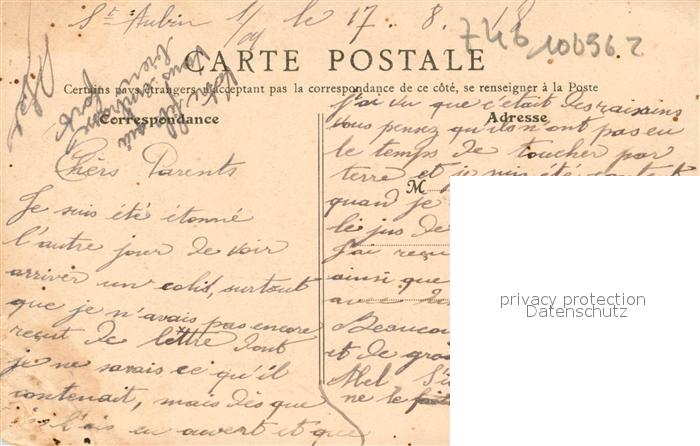 St Aubin s/ le 17. 8. 18
746
106962
CARTE POSTALE
Certains pays étrangers n'acceptant pas la correspondance de ce côté, se renseigner à la Poste
Correspondance
Adresse
M
Chers Parents
Je suis été étonné
l'autre jour de voir
arriver un colis, surtout
que je n'avais pas encore
reçut de lettre dont
je ne savais ce qu'il
contenait, mais dès que
je l'ais eu ouvert et que
j'ai vu que c'était des raisains
vous pensez qu'ils n'ont pas eu
le temps de toucher par
terre et je suis été
quand je
le jus de
J'ai reçu
ainsi que
avec
Beaucou
et de gro
Abel
ne le
Votre fils qui
vous embrasse
bien fort
Abel
privacy protection
Datenschutz